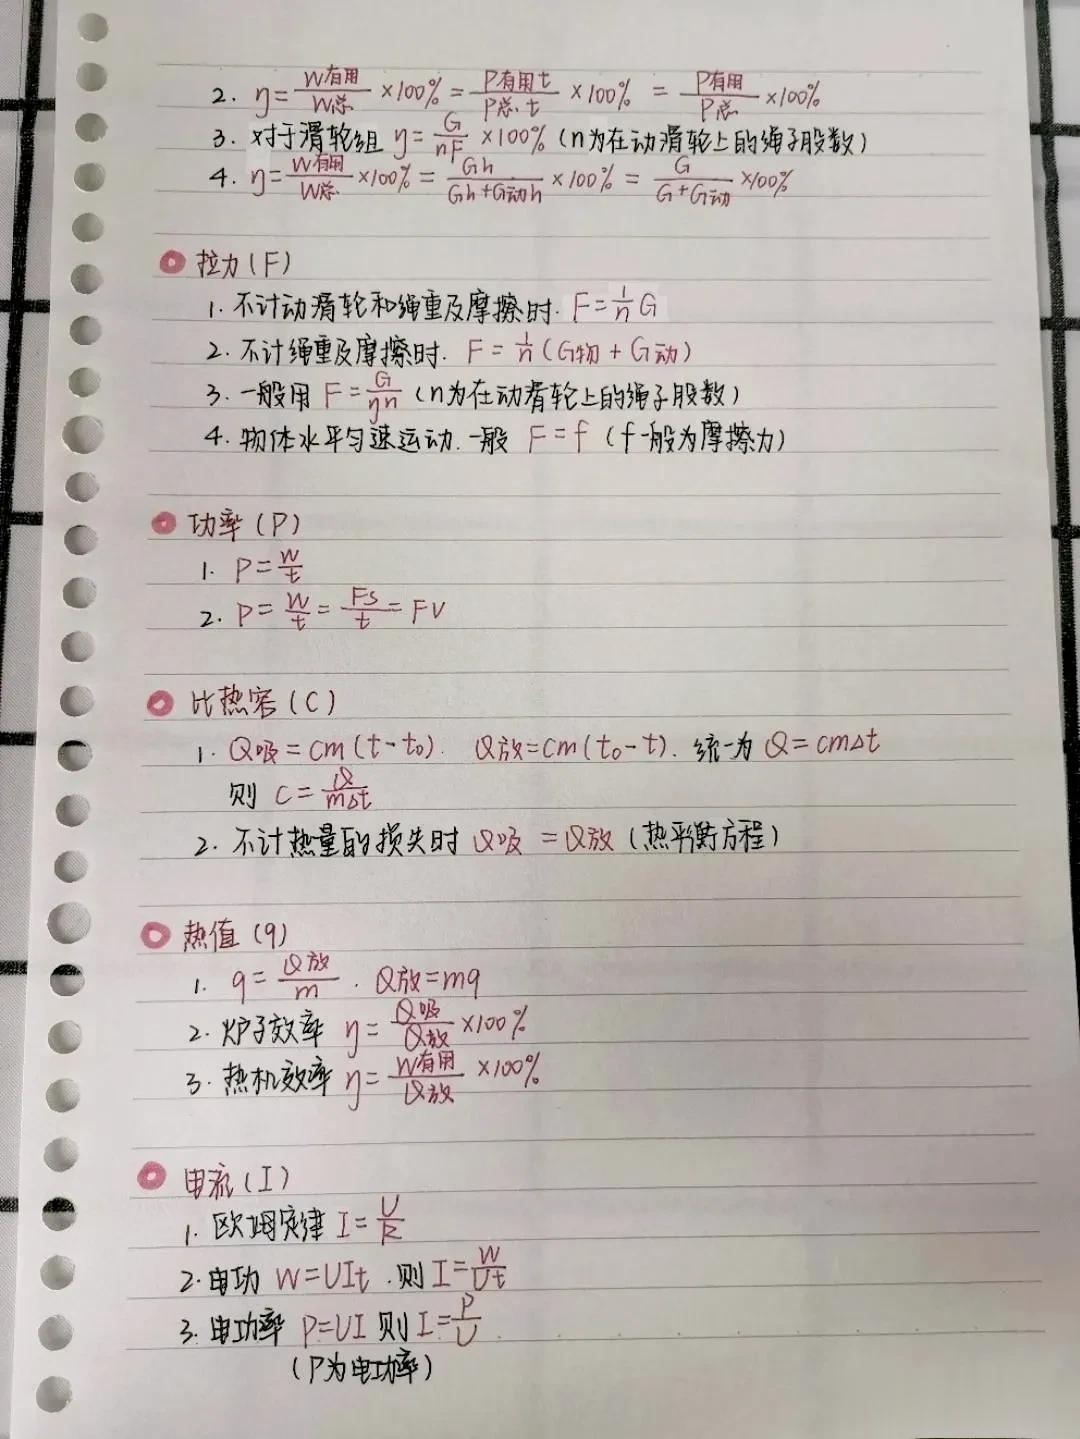 2. η=W有用/W总×100%=P有用t/P总t×100%=P有用/P总×100%
3. 对于滑轮组 η=G/nF×100%(n为在动滑轮上的绳子股数)
4. η=W有用/W总×100%=Gh/Gh+G动h×100%=G/G+G动×100%
拉力(F)
1. 不计动滑轮和绳重及摩擦时. F=1/n G
2. 不计绳重及摩擦时. F=1/n(G物+G动)
3. 一般用 F=G/ηn (n为在动滑轮上的绳子股数)
4. 物体水平匀速运动. 一般 F=f (f一般为摩擦力)
功率(P)
1. P=W/t
2. P=W/t=Fs/t=FV
比热容(C)
1. Q吸=cm(t-t₀). Q放=cm(t₀-t). 统一为 Q=cmΔt
则 C=Q/mΔt
2. 不计热量的损失时 Q吸=Q放(热平衡方程)
热值(q)
1. q=Q放/m. Q放=mq
2. 炉子效率 η=Q吸/Q放×100%
3. 热机效率 η=W有用/Q放×100%
电流(I)
1. 欧姆定律 I=U/R
2. 电功 W=UIt. 则 I=W/Ut
3. 电功率 P=UI 则 I=P/U
(P为电功率)